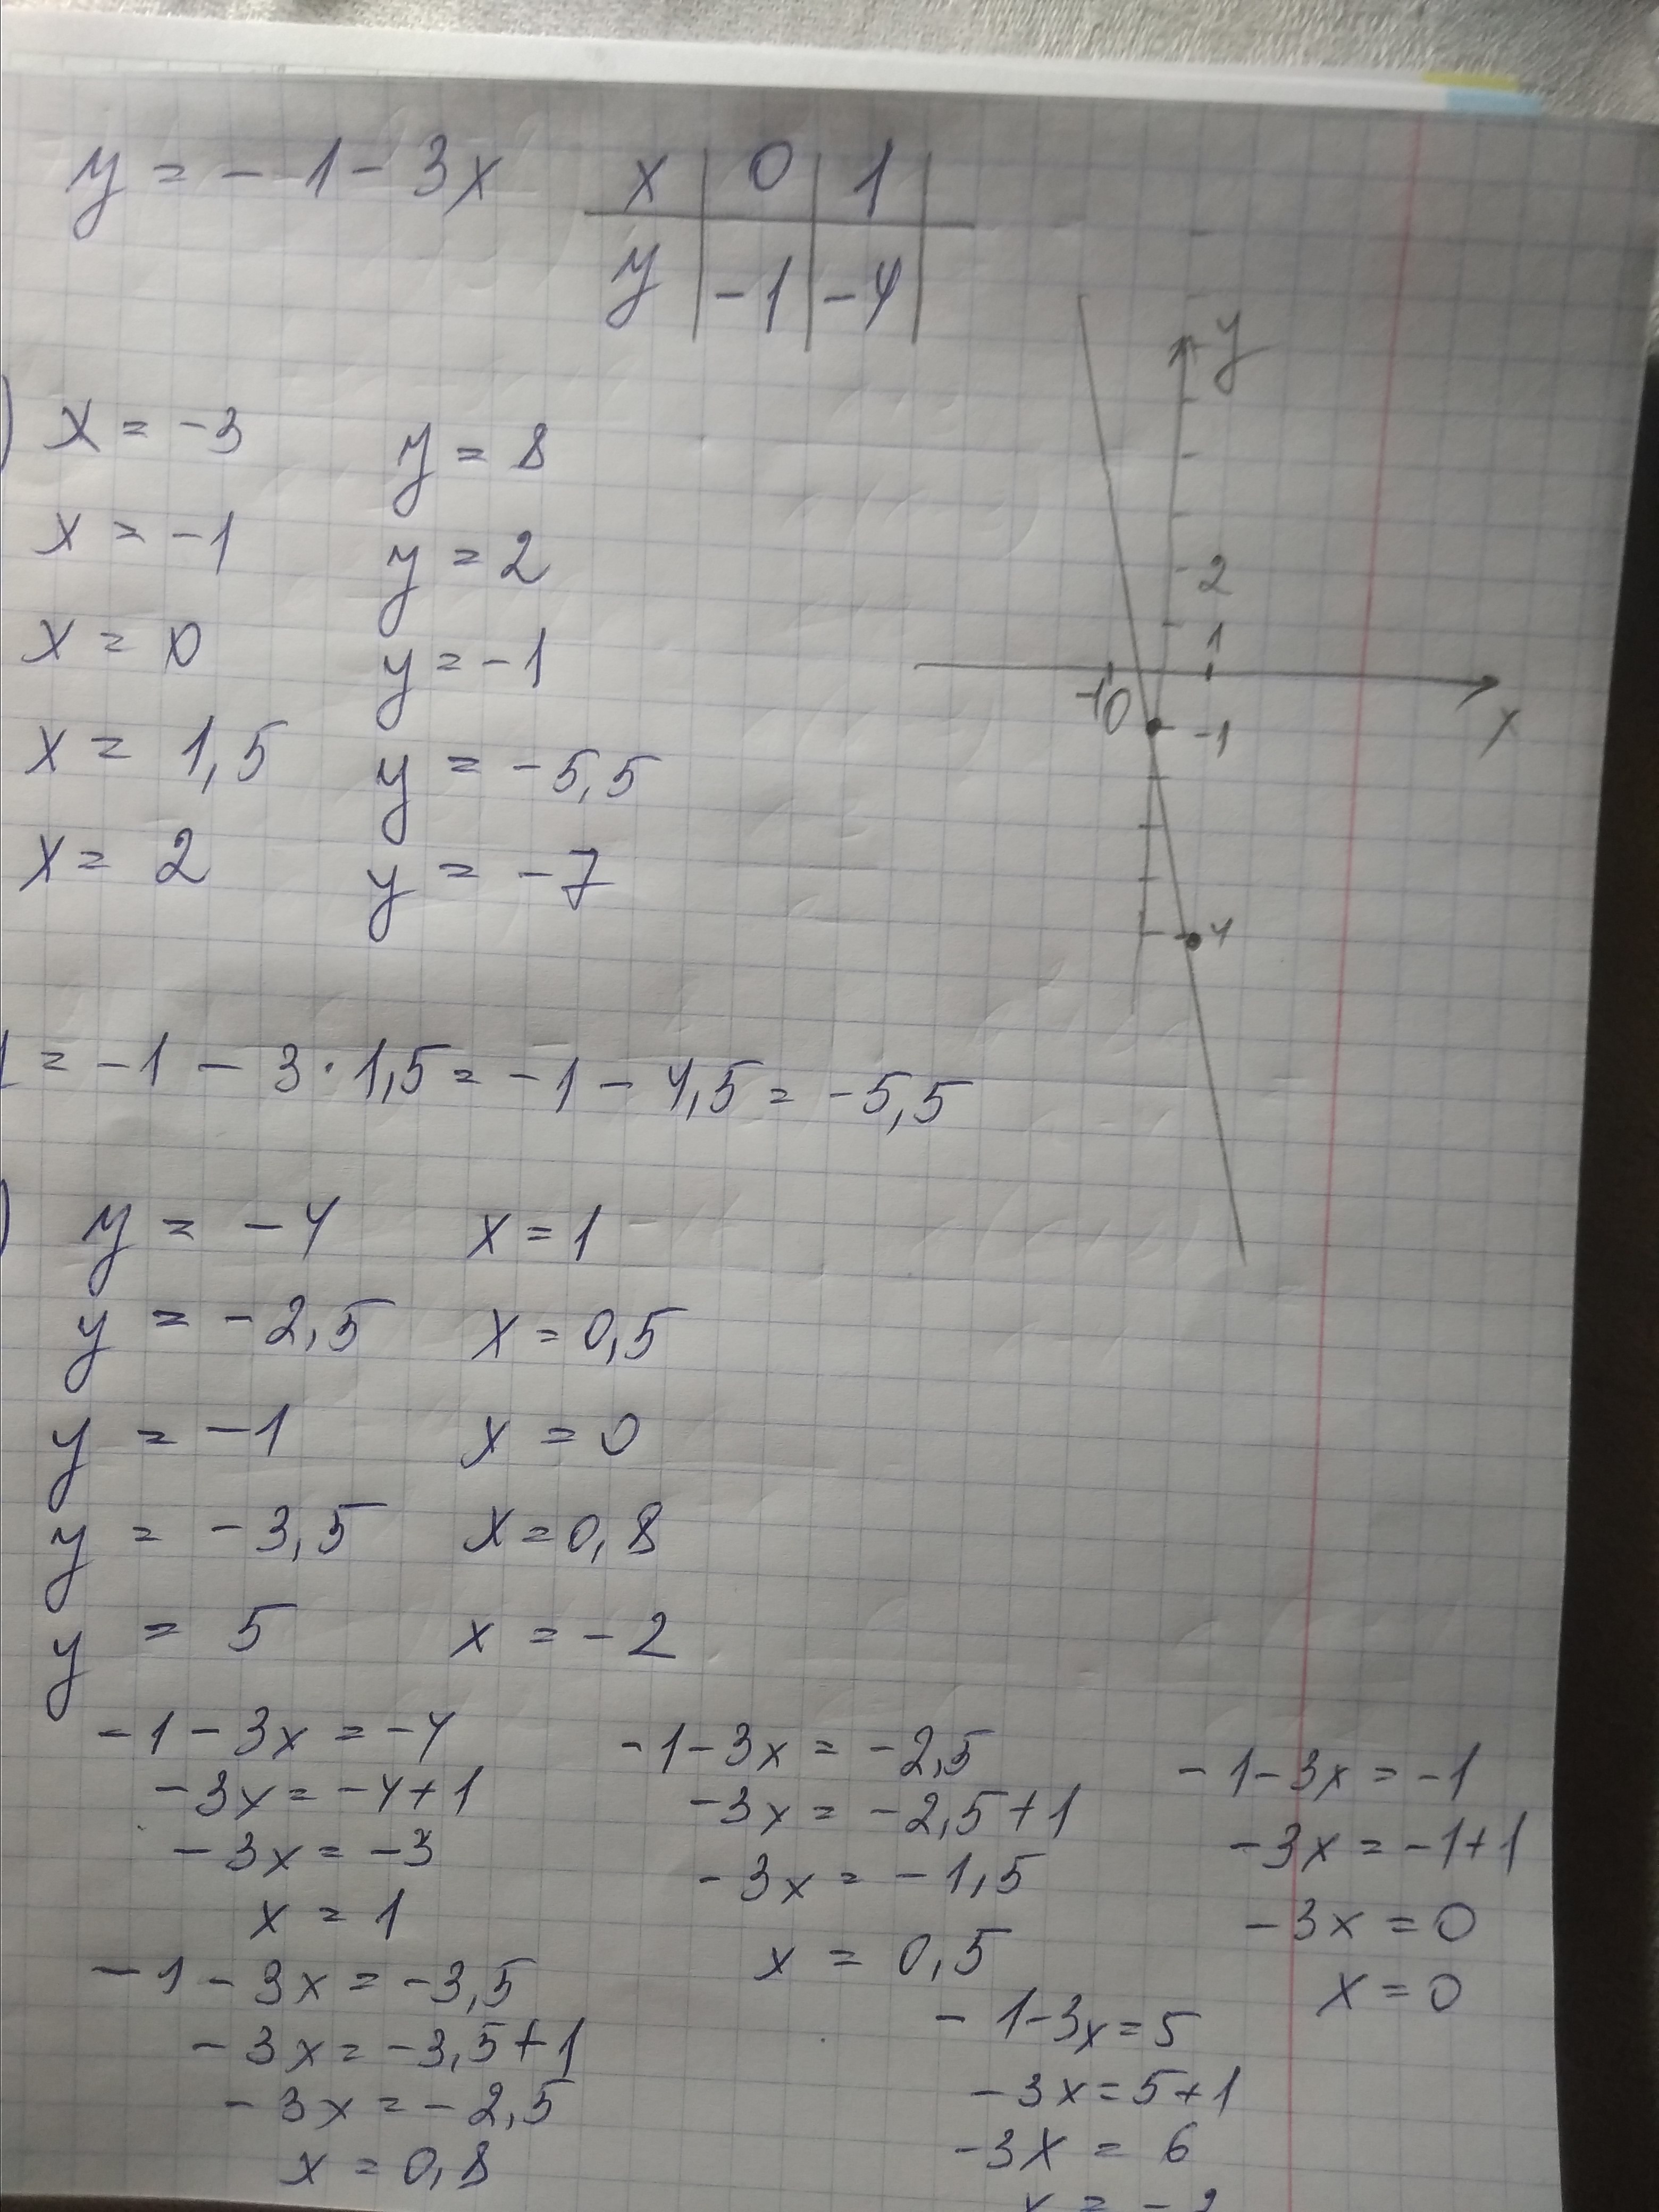 y = -1 - 3x
x 0 1
y -1 -4
) x = -3 y = 8
x = -1 y = 2
x = 0 y = -1
x = 1,5 y = -5,5
x = 2 y = -7
y
2
1
-1 0
-1
x
-4
= -1 - 3 · 1,5 = -1 - 4,5 = -5,5
) y = -4 x = 1
y = -2,5 x = 0,5
y = -1 x = 0
y = -3,5 x = 0,8
y = 5 x = -2
-1 - 3x = -4
-3x = -4 + 1
-3x = -3
x = 1
-1 - 3x = -2,5
-3x = -2,5 + 1
-3x = -1,5
x = 0,5
-1 - 3x = -1
-3x = -1 + 1
-3x = 0
x = 0
-1 - 3x = -3,5
-3x = -3,5 + 1
-3x = -2,5
x = 0,8
-1 - 3x = 5
-3x = 5 + 1
-3x = 6
x = -2